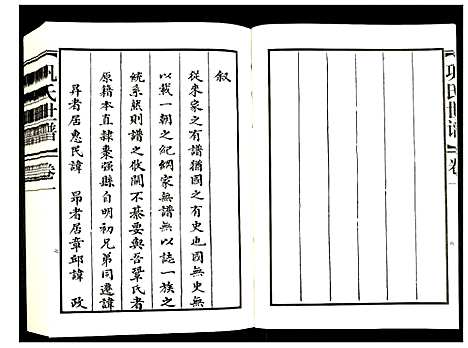 巩氏世谱
卷一
叙
從來家之有譜猶國之有史也國無史無
以載一朝之紀綱家無譜無以誌一族之
統系然則譜之攸關不綦要與吾鞏氏者
原籍本直隸棗强縣自明初兄弟同遷諱
昇者居惠民諱 昴者居章邱諱 政
巩氏世谱
卷一